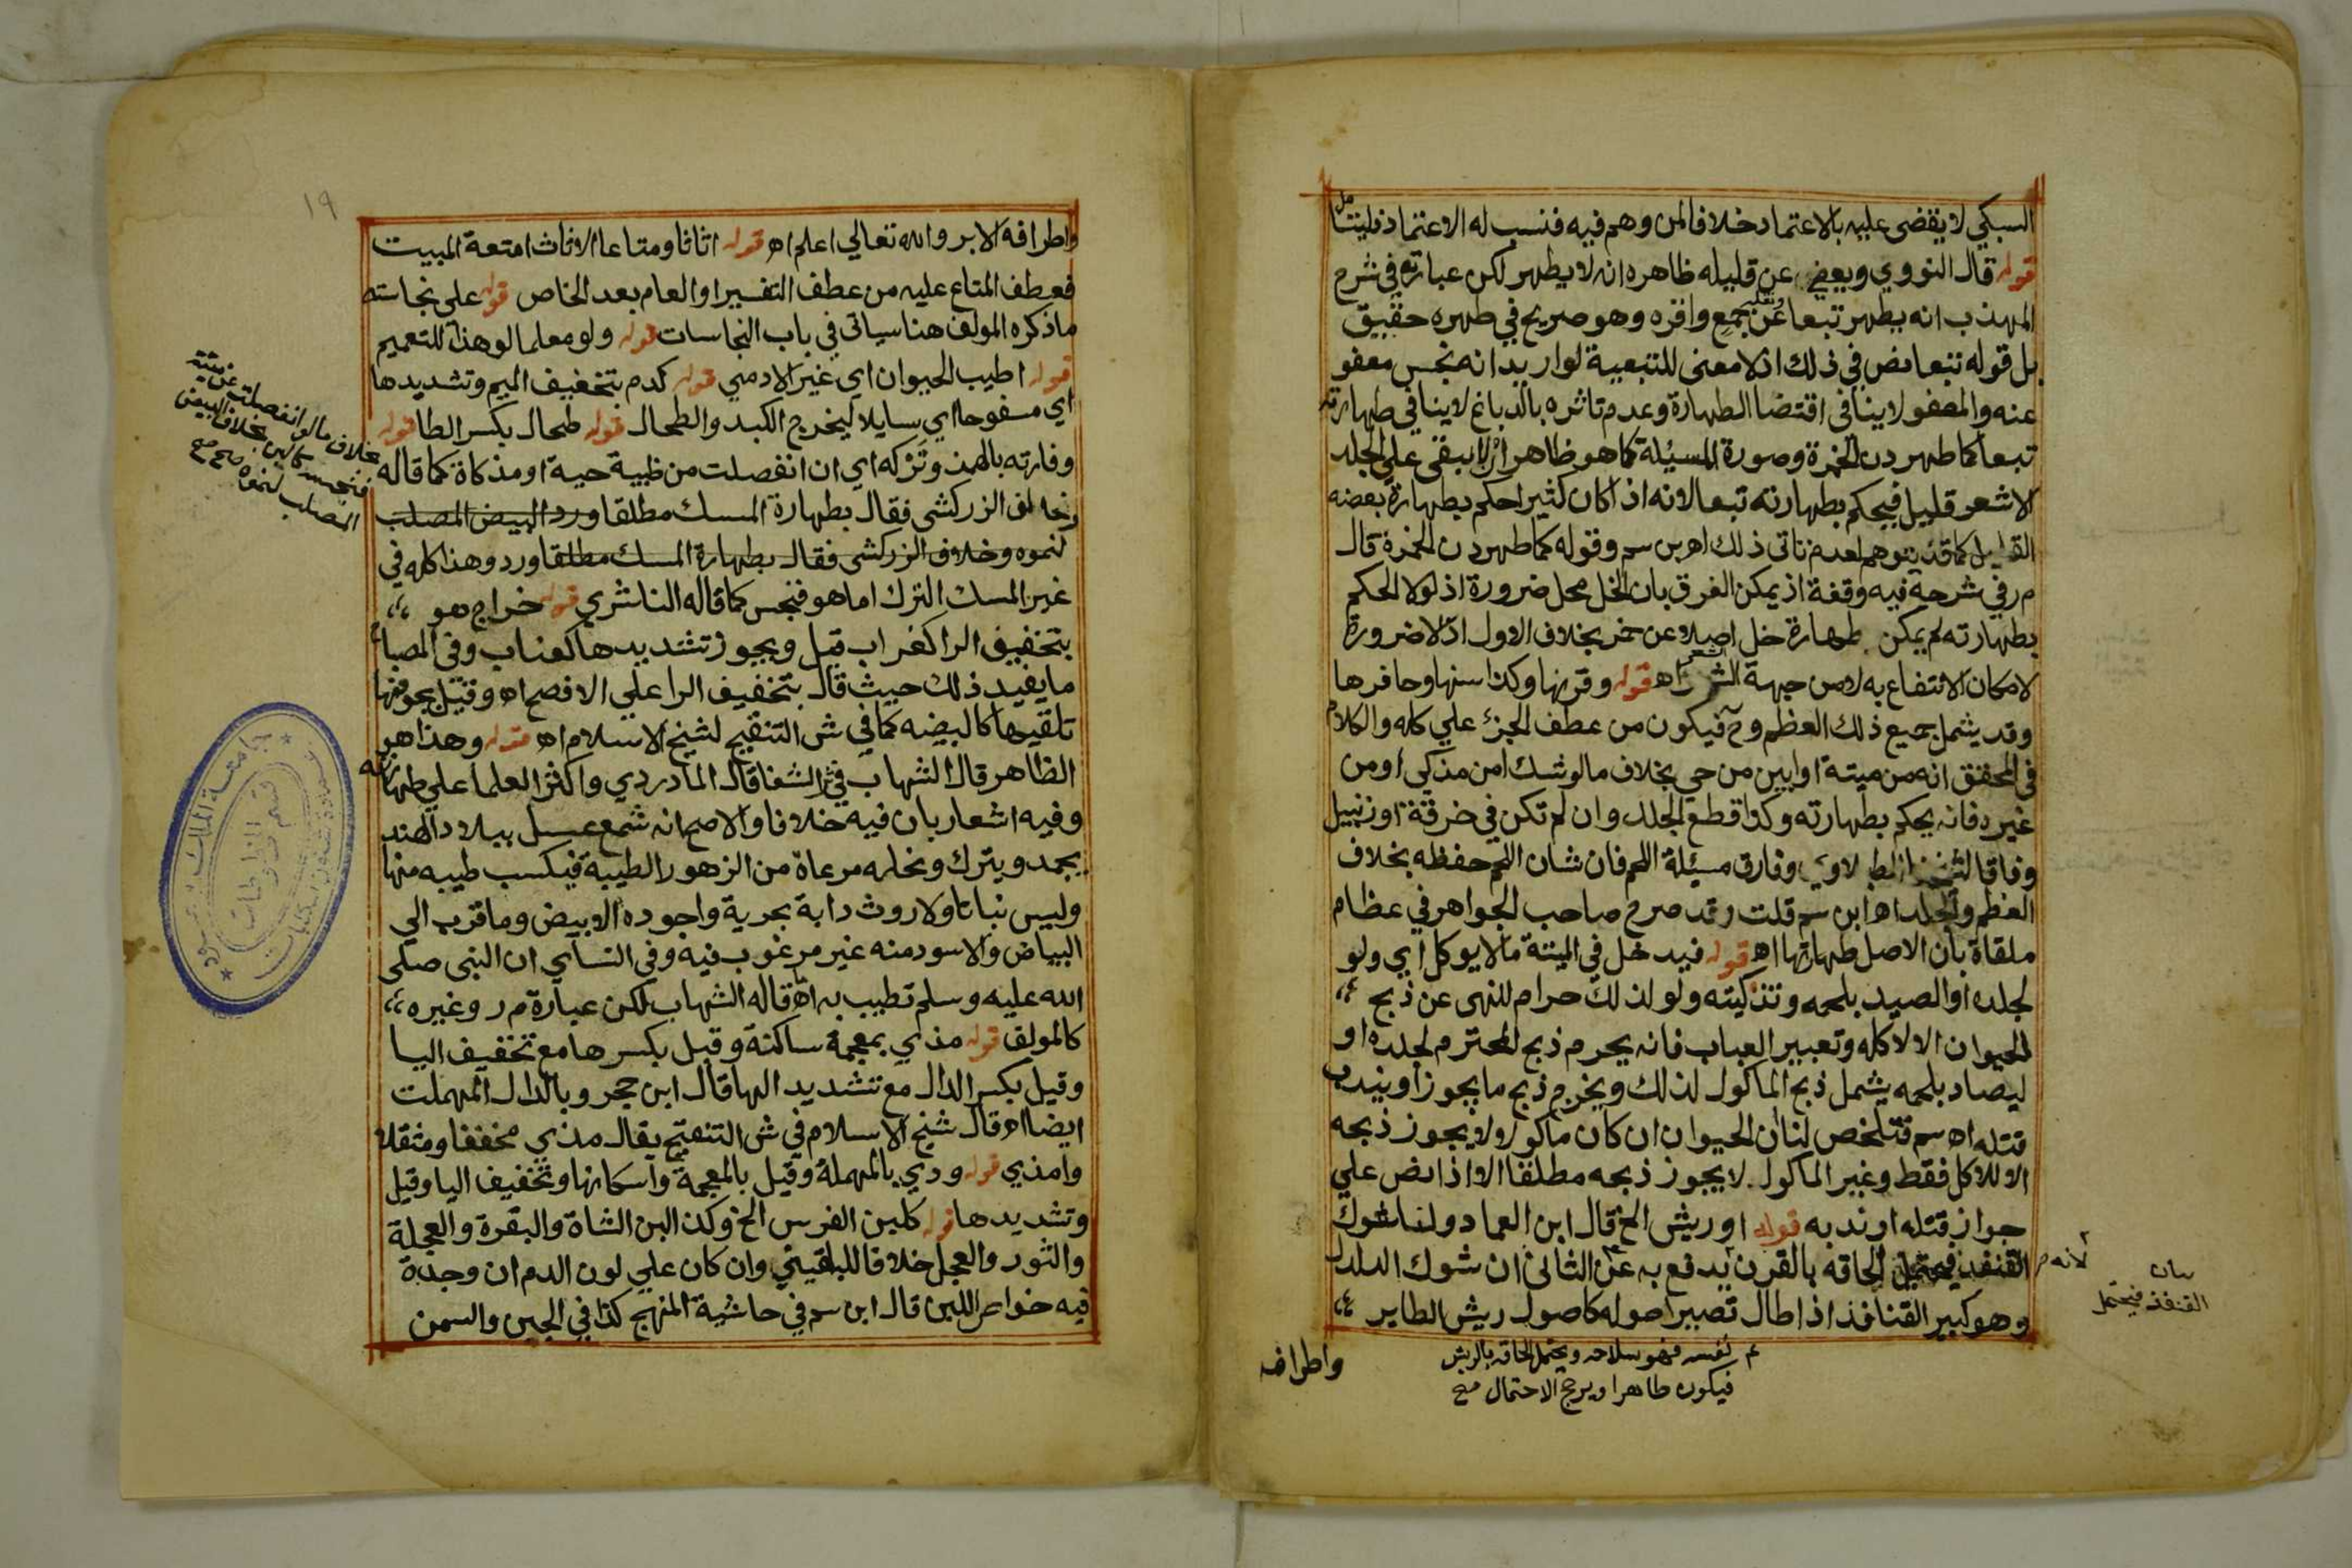 السبكي لا يقضى عليه بالاعتماد خلافا لمن وهم فيه فنسب له الاعتماد فليتامل
قوله قال النووي ويعفى عن قليله ظاهره انه لا يطهر لكن عبارته في شرح
المهذب انه يطهر تبعا وتعليم عن جمع واقره وهو صريح في طهره حقيقة
بل قوله تبعا نص في ذلك اذ لا معنى للتبعية لو اريد انه نجس معفو
عنه والمعفو لا ينافى اقتضا الطهارة وعدم تاثره بالدباغ لا ينافي طهارته
تبعا كما طهر دن الخمرة وصورة المسيئلة كما هو ظاهر ان لا يبقى على الجلد
الا شعر قليل فيحكم بطهارته تبعا لانه اذا كان كثيرا حكم بطهارة بعضه
القليل كما قد يتوهم لعدم تاتى ذلك اه بن سم وقوله كما طهر دن الخمرة قال
م ر في شرحه فيه وقفة اذ يمكن الفرق بان الخل محل ضرورة اذ لولا الحكم
بطهارته لم يمكن طهارة خل اصلا عن خمر بخلاف الاول اذ لا ضرورة
لامكان الانتفاع به لا من جهة الشعر اه قوله وقرنها وكذا سنها وحافرها
وقد يشمل جميع ذلك العظم وح فيكون من عطف الجزء علي كله والكلام
في المحقق انه من ميتة او ابين من حي بخلاف ما لو شك امن مذكى او من
غيره فانه يحكم بطهارته وكذا قطع الجلد وان لم تكن في خرقة او زنبيل
وفاقا لشيخنا الطبلاوي وفارق مسيئلة اللحم فان شان اللحم حفظه بخلاف
العظم والجلد اه ابن سم قلت وقد صرح صاحب الجواهر في عظام
ملقاة بان الاصل طهارتها اه قوله فيدخل في الميتة ما لا يوكل اي ولو
لجلده او الصيد بلحمه وتذكيته ولو لذلك حرام للنهى عن ذبح
الحيوان الا لاكله وتعبير العباب فانه يحرم ذبح المحترم لجلده او
ليصاد بلحمه يشمل ذبح الماكول لذلك ويخرج ذبح ما يجوز او يندب
قتله اه سم فتلخص لنا ان الحيوان ان كان ماكولا لا يجوز ذبحه
الا للاكل فقط وغير الماكول لا يجوز ذبحه مطلقا الا اذا نص علي
جواز قتله او ندبه قوله او ريش الخ قال ابن العماد ولنا شوك
القنفذ فيحتمل الحاقه بالقرن يدفع به عن الثانى ان شوك الدلدل
وهو كبير القنافذ اذا طال تصير اصوله كاصول ريش الطاير
لانه
بيان
القنفذ فيحتمل
م نفسه فهو سلاحه ويحتمل الحاقه بالريش
فيكون طاهرا ويرجح الاحتمال صح
واطرافه
١٩
واطرافه الابر والله تعالي اعلم اه قوله اثاثا ومتاعا الاثاث امتعة المبيت
فعطف المتاع عليه من عطف التفسير او العام بعد الخاص قوله علي نجاسته
ما ذكره المولف هنا سياتى في باب النجاسات قوله ولو معلما لو هذا للتعميم
قوله اطيب الحيوان اي غير الادمي قوله كدم بتخفيف الميم وتشديدها
اي مسفوحا اي سايلا ليخرج الكبد والطحال قوله طحال بكسر الطا قوله
وفارته بالهمز وتركه اي ان انفصلت من ظبية حية او مذكاة كما قاله
وخالف الزركشى فقال بطهارة المسك مطلقا ورد البيض المصلب
لنموه وخلاف الزركشى فقال بطهارة المسك مطلقا ورد وهذا كله في
غير المسك الترك اما هو فنجس كما قاله الناشري قوله خراج هو
بتخفيف الرا كغراب قيل ويجوز تشديدها كعناب وفي المصباح
ما يفيد ذلك حيث قال بتخفيف الرا علي الافصح اه وقيل بجوفها
تلقيها كالبيضه كما في ش التنقيح لشيخ الاسلام اه قوله وهذا هو
الظاهر قال الشهاب في ش الشفا قال الماوردي واكثر العلما علي طهارته
وفيه اشعار بان فيه خلافا والاصح انه شمع عسل ببلاد الهند
يجمد ويترك ونحله مرعاه من الزهور الطيبة فيكسب طيبه منها
وليس نباتا ولا روث دابة بحرية واجوده الابيض وما قرب الي
البياض والاسود منه غير مرغوب فيه وفي النساي ان النبى صلى
الله عليه وسلم تطيب به اه قاله الشهاب لكن عبارة م ر وغيره
كالمولف قوله مذي بمعجمة ساكنة وقيل بكسرها مع تخفيف اليا
وقيل بكسر الدال مع تشديد الها قال ابن حجر وبالدال المهملت
ايضا اه قال شيخ الاسلام في ش التنقيح يقال مذي مخففا ومثقلا
وامذي قوله ودي بالمهملة وقيل بالمعجمة واسكانها وتخفيف اليا وقيل
وتشديدها قوله كلبن الفرس الخ وكذا لبن الشاة والبقرة والعجلة
والثور والعجل خلافا للبلقيني وان كان علي لون الدم ان وجدة
فيه خواص اللبن قال ابن سم في حاشية المنهج كذا في الجبن والسمن
بخلاف ما لو انفصلت عن ميتة
فنجسه كاللبن بخلاف البيض
المصلب لنموه صح صح